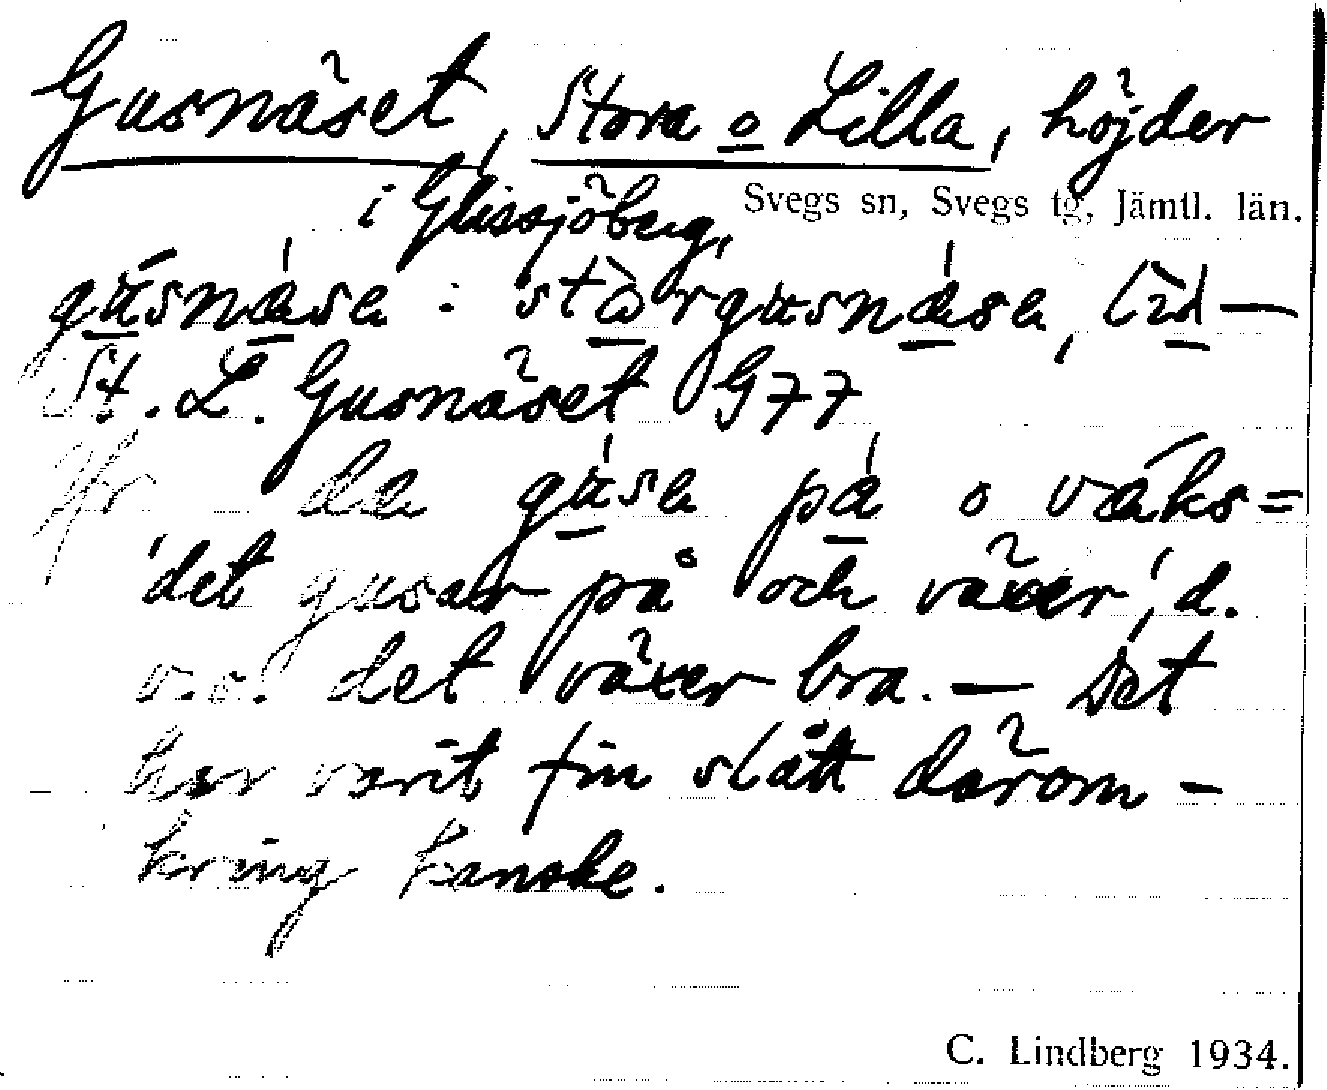 Gusnäset, Stora o Lilla, höjder
i Glissjöberg,
Svegs sn, Svegs tg, Jämtl. län.
gusnäse : stòrgusnäse,
St. L. Gusnäset G77
Jfr de gusa på o väks=
'det gusar på och växer', d.
v.s. det växer bra. — Det
har varit fin slått därom-
kring kanske.
C. Lindberg 1934.